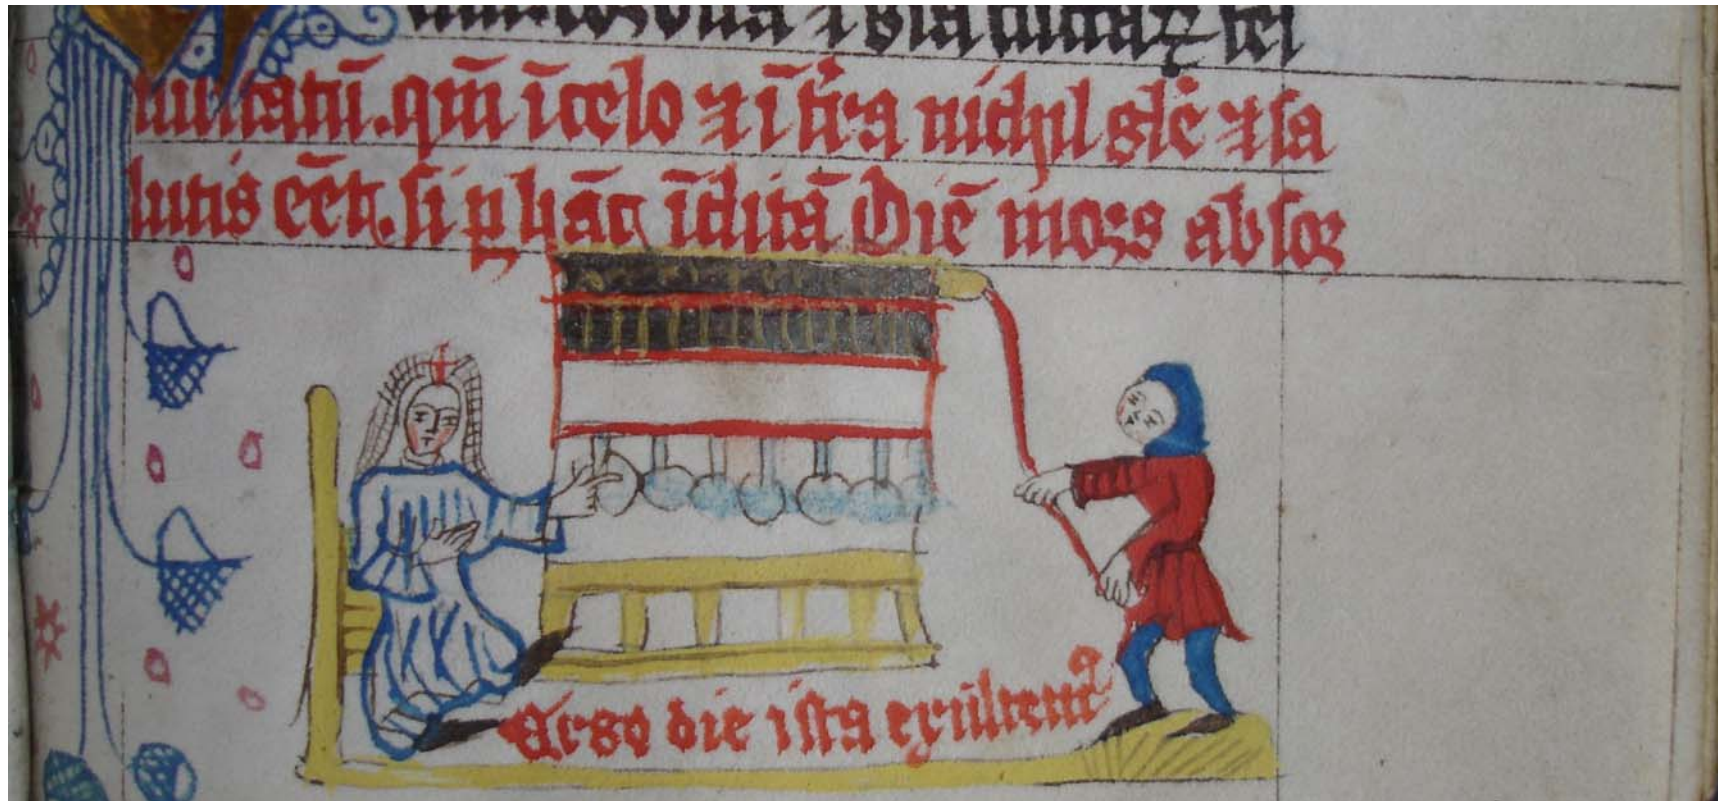 tiuitatū. qm̄ ī celo ⁊ ī tr̄a nichil glē ⁊ sa
lutis eēt. si ꝑ hāc īclitā Diē mors absor
Ergo die ista exultemꝰ